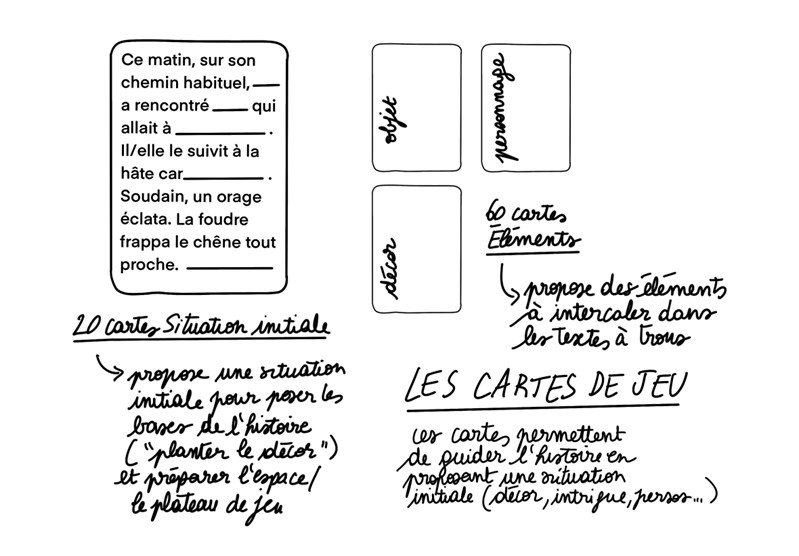 Ce matin, sur son
chemin habituel, ___
a rencontré ____ qui
allait à __________ .
Il/elle le suivit à la
hâte car__________ .
Soudain, un orage
éclata. La foudre
frappa le chêne tout
proche. __________
20 cartes Situation initiale
propose une situation
initiale pour poser les
bases de l'histoire
("planter le décor")
et préparer l'espace/
le plateau de jeu
objet
personnage
décor
60 cartes
Éléments
propose des éléments
à intercaler dans
les textes à trous
LES CARTES DE JEU
ces cartes permettent
de guider l'histoire en
proposant une situation
initiale (décor, intrigue, persos...)